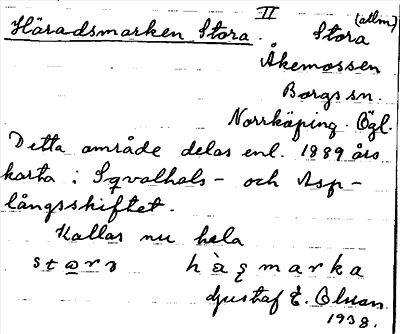 II
Häradsmarken Stora. Stora (allm)
Åkemossen
Borgs sn.
Norrköping. Ögl.
Detta område delas enl. 1889 års
karta i Sqvalhals- och Asp-
långsskiftet.
Kallas nu hela
Gustaf E. Olson
1938.